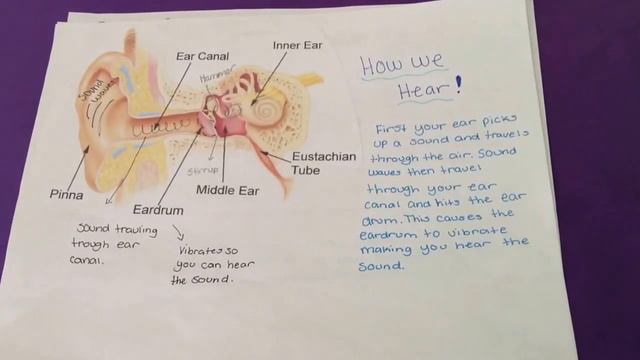 Ear Canal
Inner Ear
Hammer
Sound
waves
stirrup
Eustachian
Tube
Pinna
Middle Ear
Eardrum
Sound trauling
trough ear
canal.
Vibrates so
you can hear
the sound.
How we
Hear!
First your ear picks
up a sound and travels
through the air. Sound
waves then travel
through your ear
canal and hits the ear
drum. This causes the
eardrum to vibrate
making you hear the
sound.